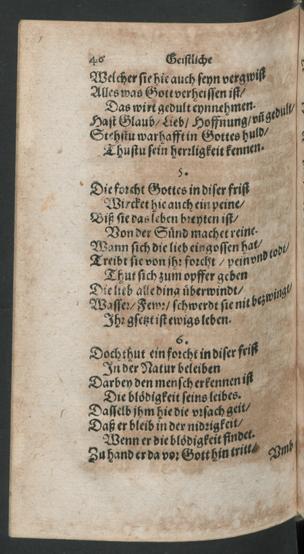 46 Geistliche
Welcher sie hie auch seyn vergwist
Alles was Gott verheissen ist/
Das wirt gedult eynnehmen.
Hast Glaub/ Lieb/ Hoffnung/ vñ gedult/
Stehstu warhafft in Gottes huld/
Thustu sein herrligkeit kennen.
5.
Die forcht Gottes in diser frist
Wircket hie auch ein peine/
Biß sie das leben breyten ist/
Von der Sünd machet reine.
Wann sich die lieb eingossen hat/
Treibt sie von jhr forcht / pein vnd todt/
Thut sich zum opffer geben
Die lieb alle ding überwindt/
Wasser/ Fewr/ schwerdt sie nit bezwingt/
Jhr gsetzt ist ewigs leben.
6.
Doch thut ein forcht in diser frist
In der Natur beleiben
Darbey den mensch erkennen ist
Die blödigkeit seins leibes.
Dasselb jhm hie die vrsach geit/
Daß er bleib in der nidrigkeit/
Wenn er die blödigkeit findet.
Zu hand er da vor Gott hin tritt/
Vmb